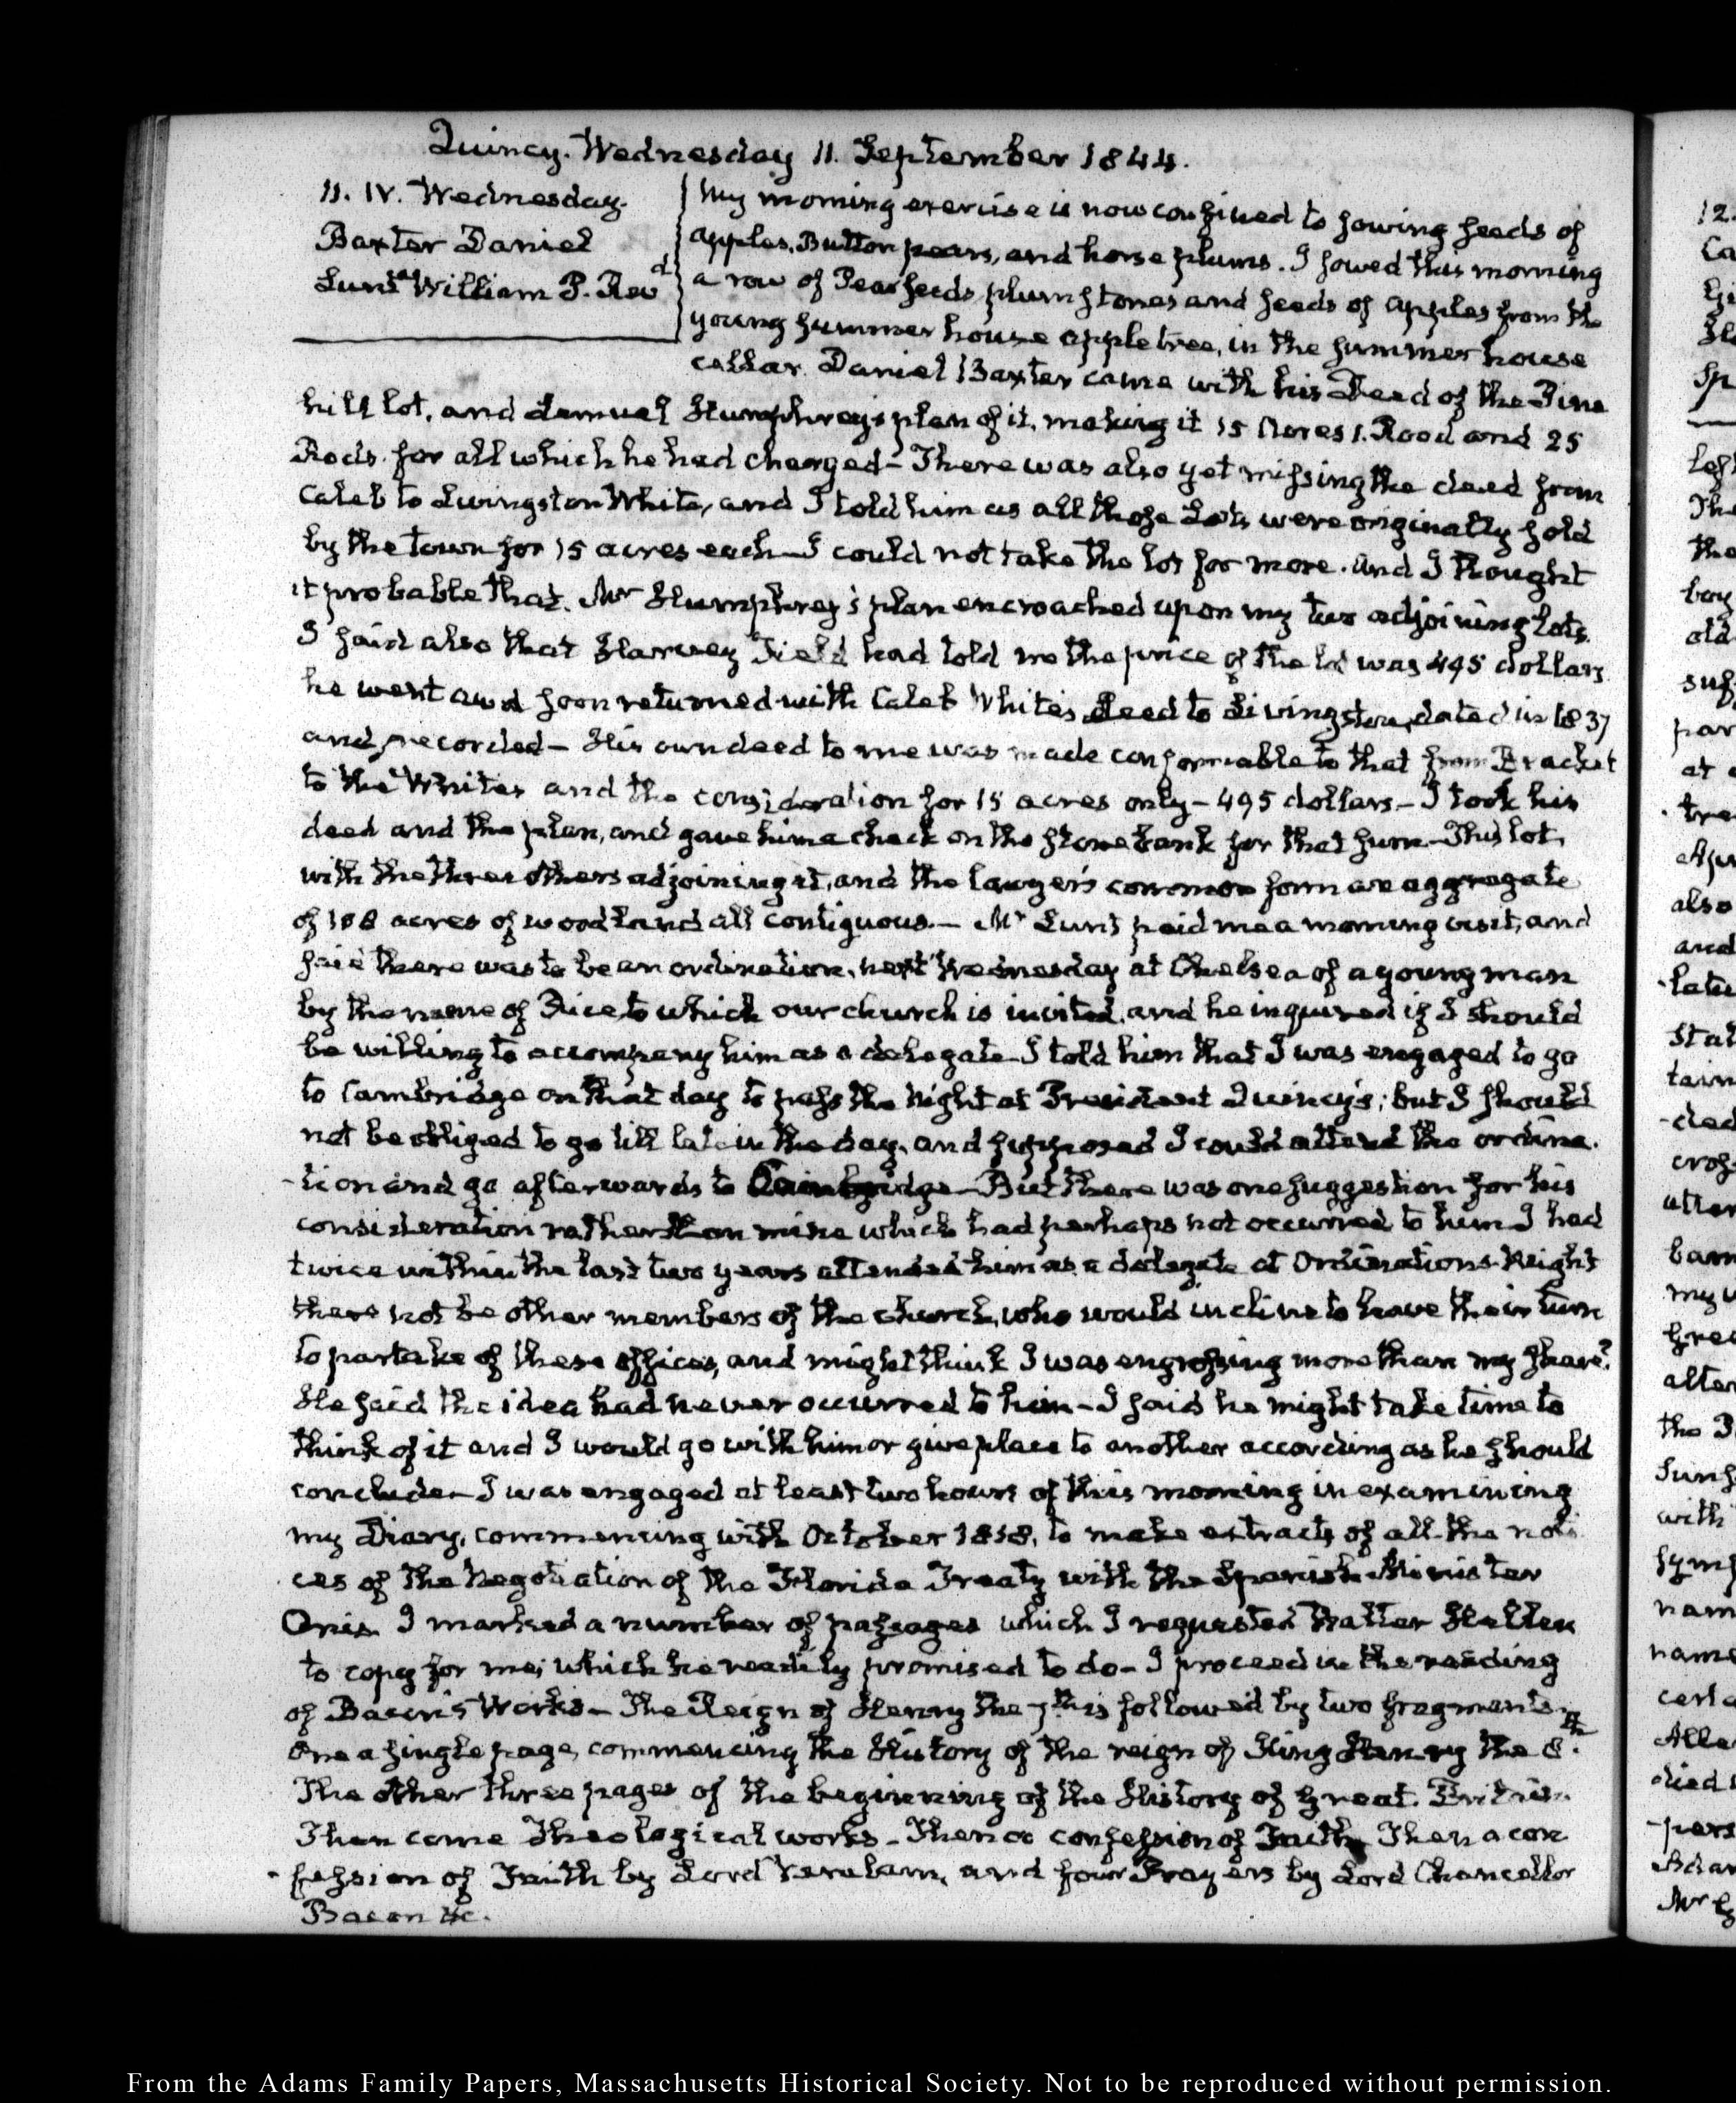 Quincy. Wednesday 11. September 1844.
11. IV. Wednesday.
Baxter Daniel
Lunt William P. Revd
My morning exercise is now confined to sowing seeds of
apples, Button pears, and horse plums. I sowed this morning
a row of Pear seeds, plum stones and seeds of apples from the
young summer house apple tree, in the summer house
cellar. Daniel Baxter came with his Deed of the Pine
hill lot, and Lemuel Humphrey's plan of it, making it 15 Acres 1. Rood and 25
Rods. for all which he had charged – There was also yet missing the deed from
Caleb to Livingston White, and I told him as all those Lots were originally sold
by the town for 15 acres each – I could not take the lot for more. And I thought
it probable that Mr Humphrey's plan encroached upon my two adjoining lots.
I said also that Harvey Field had told me the price of the lot was 495 dollars
he went and soon returned with Caleb White's deed to Livingston, dated in 1837
and recorded – His own deed to me was made conformable to that from Bracket
to the Whites and the consideration for 15 acres only – 495 dollars – I took his
deed and the plan, and gave him a check on the stone bank for that sum – This lot,
with the three others adjoining it, and the lawyer's common form an aggregate
of 108 acres of woodland all contiguous. – Mr Lunt paid me a morning visit, and
said there was to be an ordination, next Wednesday at Chelsea of a young man
by the name of to which our church is invited, and he inquired if I should
be willing to accompany him as a delegate – I told him that I was engaged to go
to Cambridge on that day to pass the Night at President Quincy's; but I should
not be obliged to go till late in the day, and supposed I could attend the ordina-
-tion and go afterwards to Cambridge – But there was one suggestion for his
consideration rather than mine which had perhaps not occurred to him I had
twice within the last two years attended him as a delegate at Ordinations. Might
there not be other members of the church, who would incline to have their turn
to partake of these offices, and might think I was engrossing more than my share?
He said the idea had never occurred to him – I said he might take time to
think of it and I would go with him or give place to another according as he should
conclude – I was engaged at least two hours of this morning in examining
my Diary, commencing with October 1818, to make extracts of all the noti
ces of the Negotiation of the Florida Treaty with the Spanish Minister
Onis. I marked a number of passages which I requested Walter Hellen
to copy for me; which he readily promised to do – I proceed in the reading
of Bacon's Works – The Reign of Henry the 7th is followed by two fragments,
One a single page, commencing the History of the reign of King Henry the 8.th
The other three pages of the beginning of the History of Great. Britain.
Then come Theological works – Then a confession of Faith, Then a con
-fession of Faith by Lord Verulam, and four Prayers by Lord Chancellor
Bacon &c.
From the Adams Family Papers, Massachusetts Historical Society. Not to be reproduced without permission.